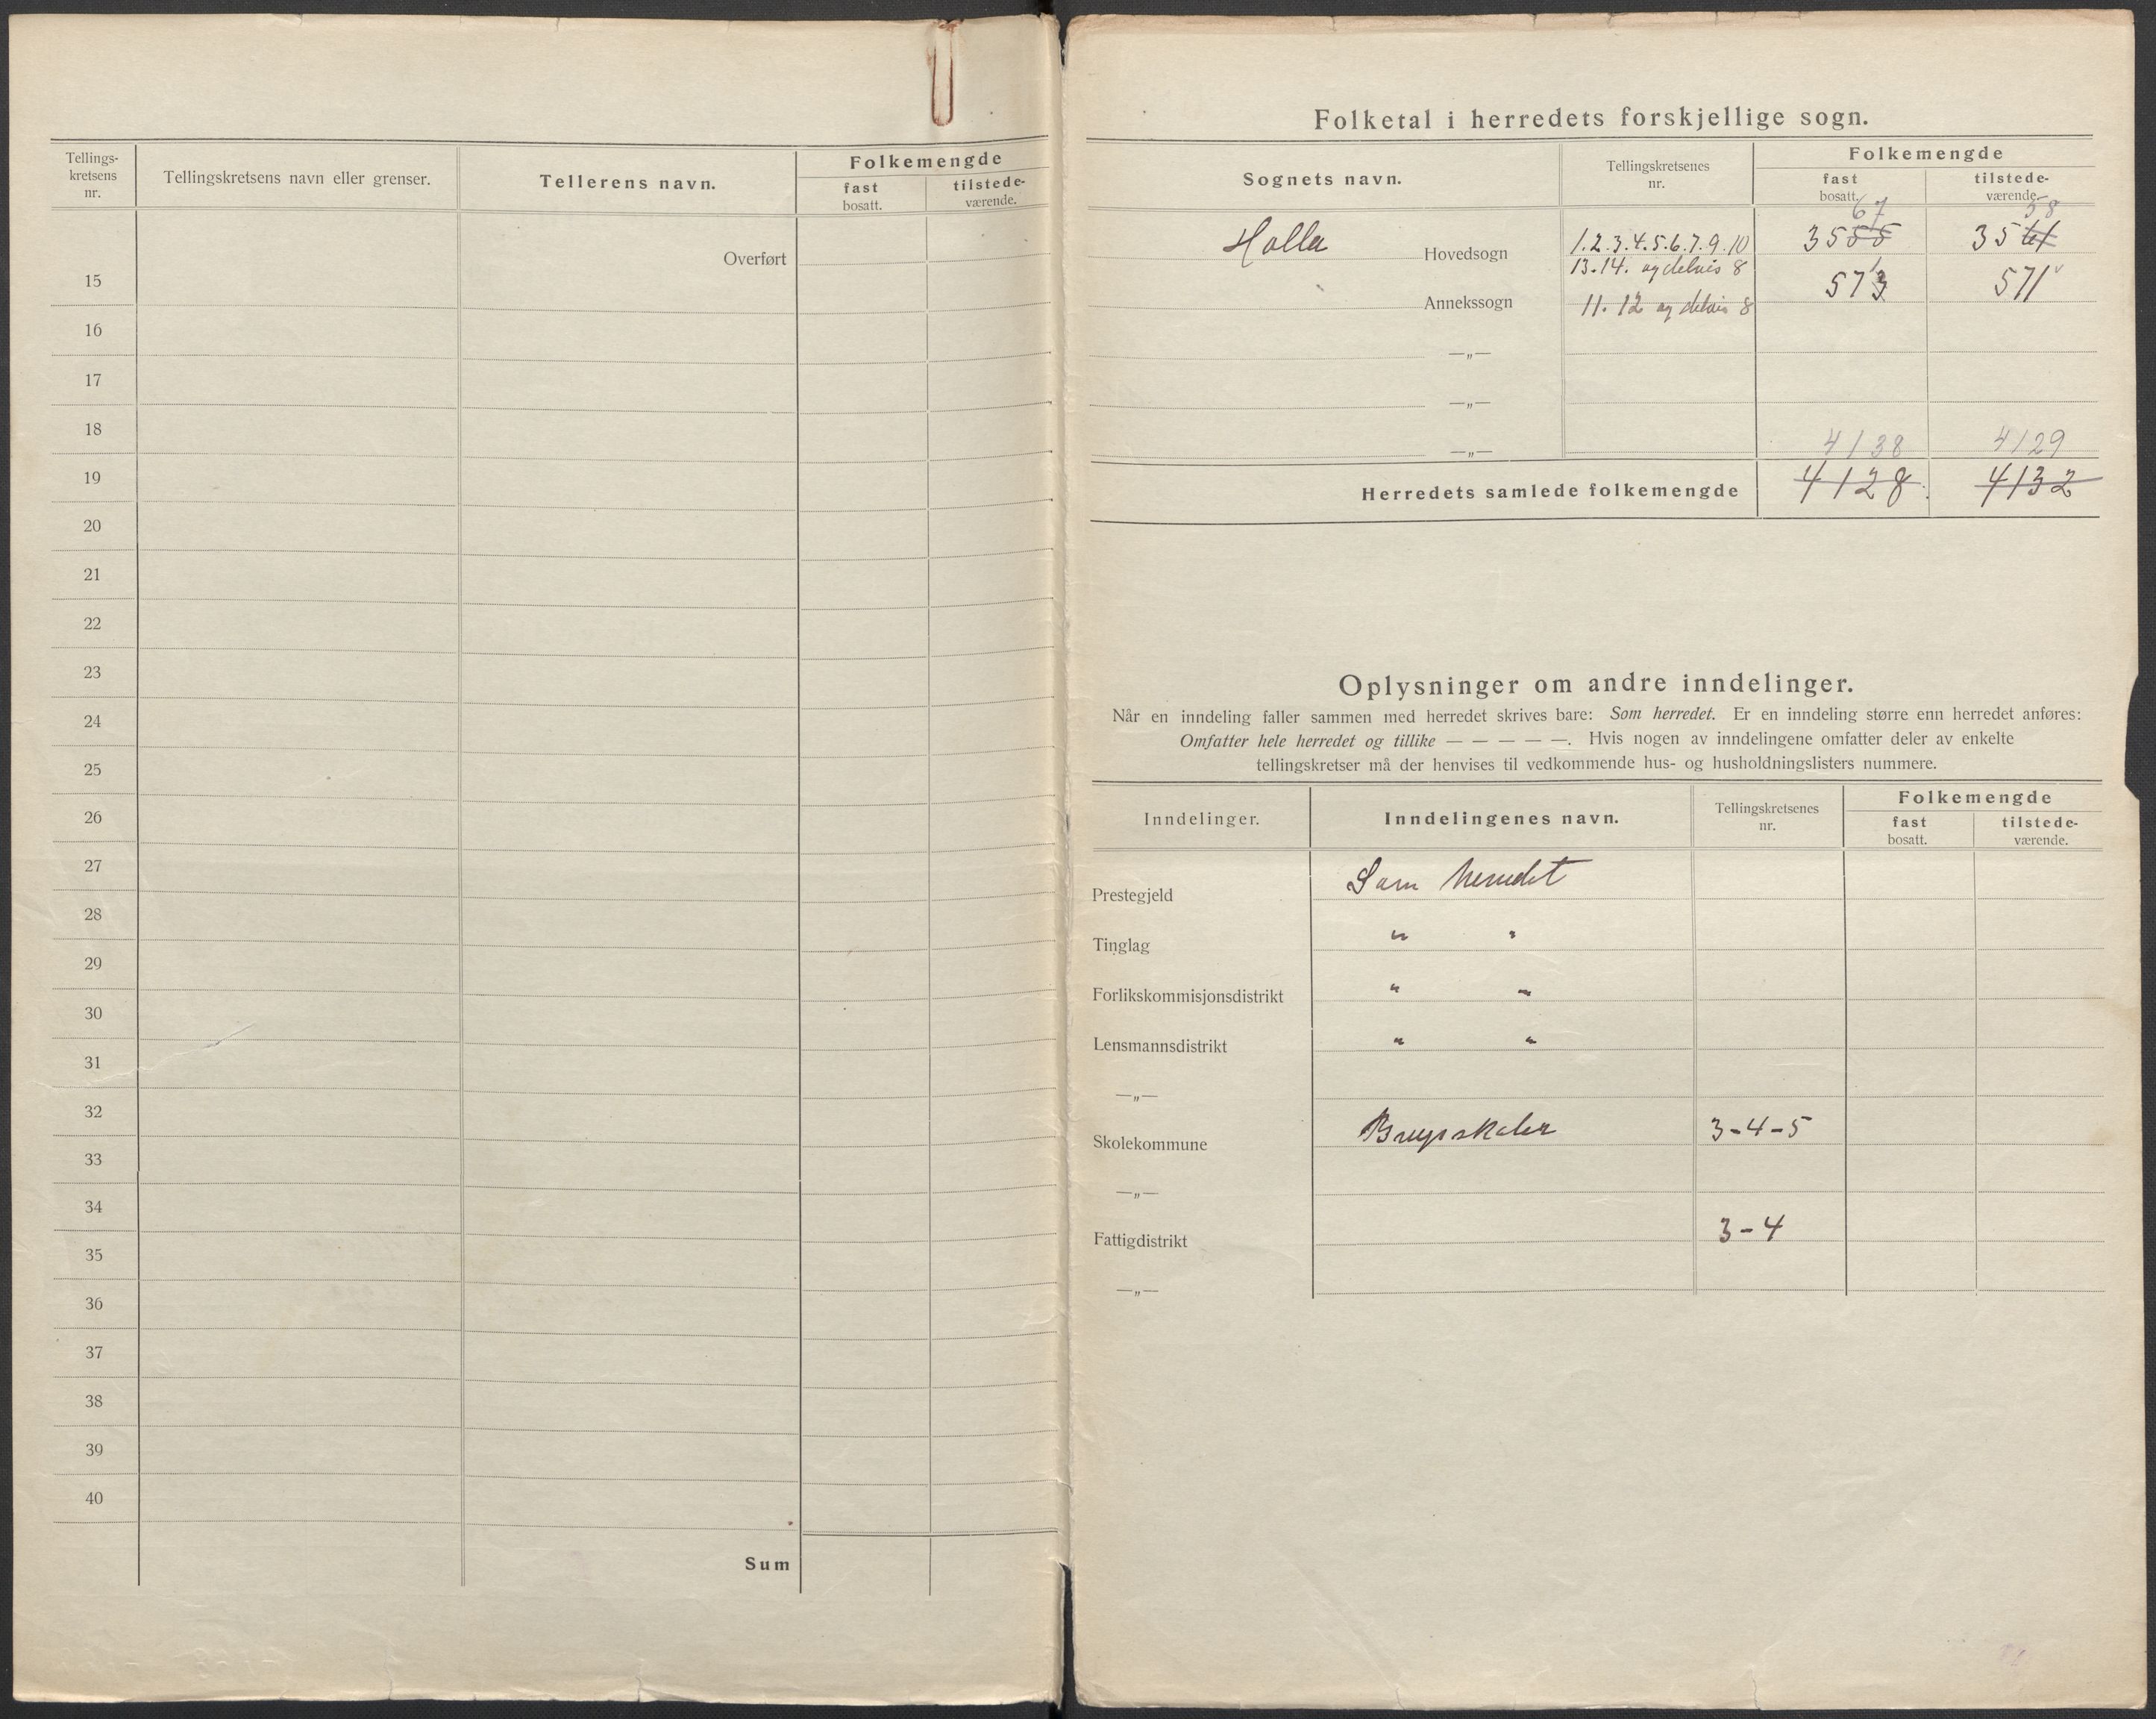 Tellings-
kretsens
nr.
Tellingskretsens navn eller grenser.
Tellerens navn.
Folkemengde
fast
bosatt.
tilstede-
værende.
Overført
15
16
17
18
19
20
21
22
23
24
25
26
27
28
29
30
31
32
33
34
35
36
37
38
39
40
Sum
Folketal i herredets forskjellige sogn.
Sognets navn.
Tellingskretsenes
nr.
Folkemengde
fast
bosatt.
tilstede-
værende.
67
58
Holla Hovedsogn 1.2.3.4.5.6.7.9.10 3555 3561
13.14. og delvis 8
Annekssogn 11. 12 og delvis 8 571 571
—„—
—„—
—„—
4138 4129
Herredets samlede folkemengde 4128 4132
Oplysninger om andre inndelinger.
Når en inndeling faller sammen med herredet skrives bare: Som herredet. Er en inndeling større enn herredet anføres:
Omfatter hele herredet og tillike — — — — —. Hvis nogen av inndelingene omfatter deler av enkelte
tellingskretser må der henvises til vedkommende hus- og husholdningslisters nummere.
Inndelinger.
Inndelingenes navn.
Tellingskretsenes
nr.
Folkemengde
fast
bosatt.
tilstede-
værende.
Prestegjeld Som herredet
Tinglag " "
Forlikskommisjonsdistrikt " "
Lensmannsdistrikt " "
—„—
Skolekommune 3-4-5
—„—
Fattigdistrikt 3-4
—„—